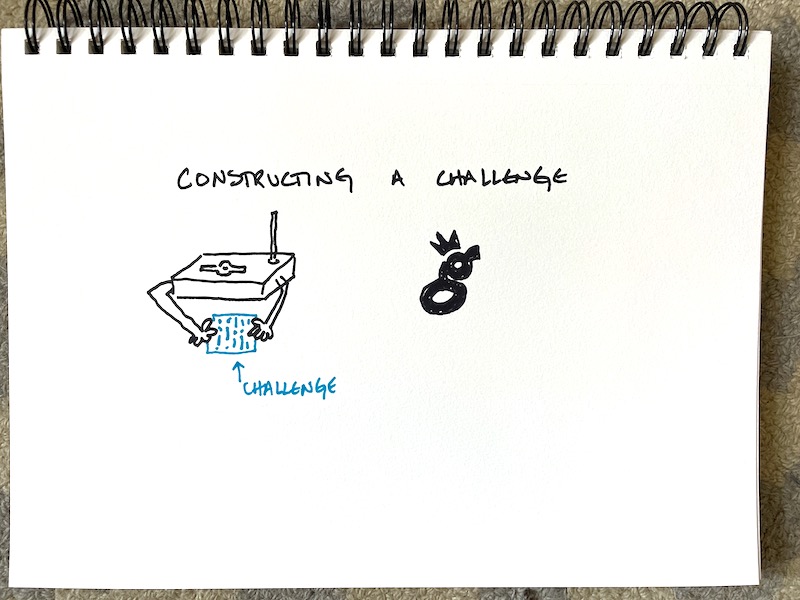 CONSTRUCTING A CHALLENGE
CHALLENGE